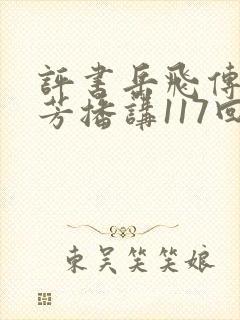 評書岳飛傳
芳播講117回
東吳笑笑娘